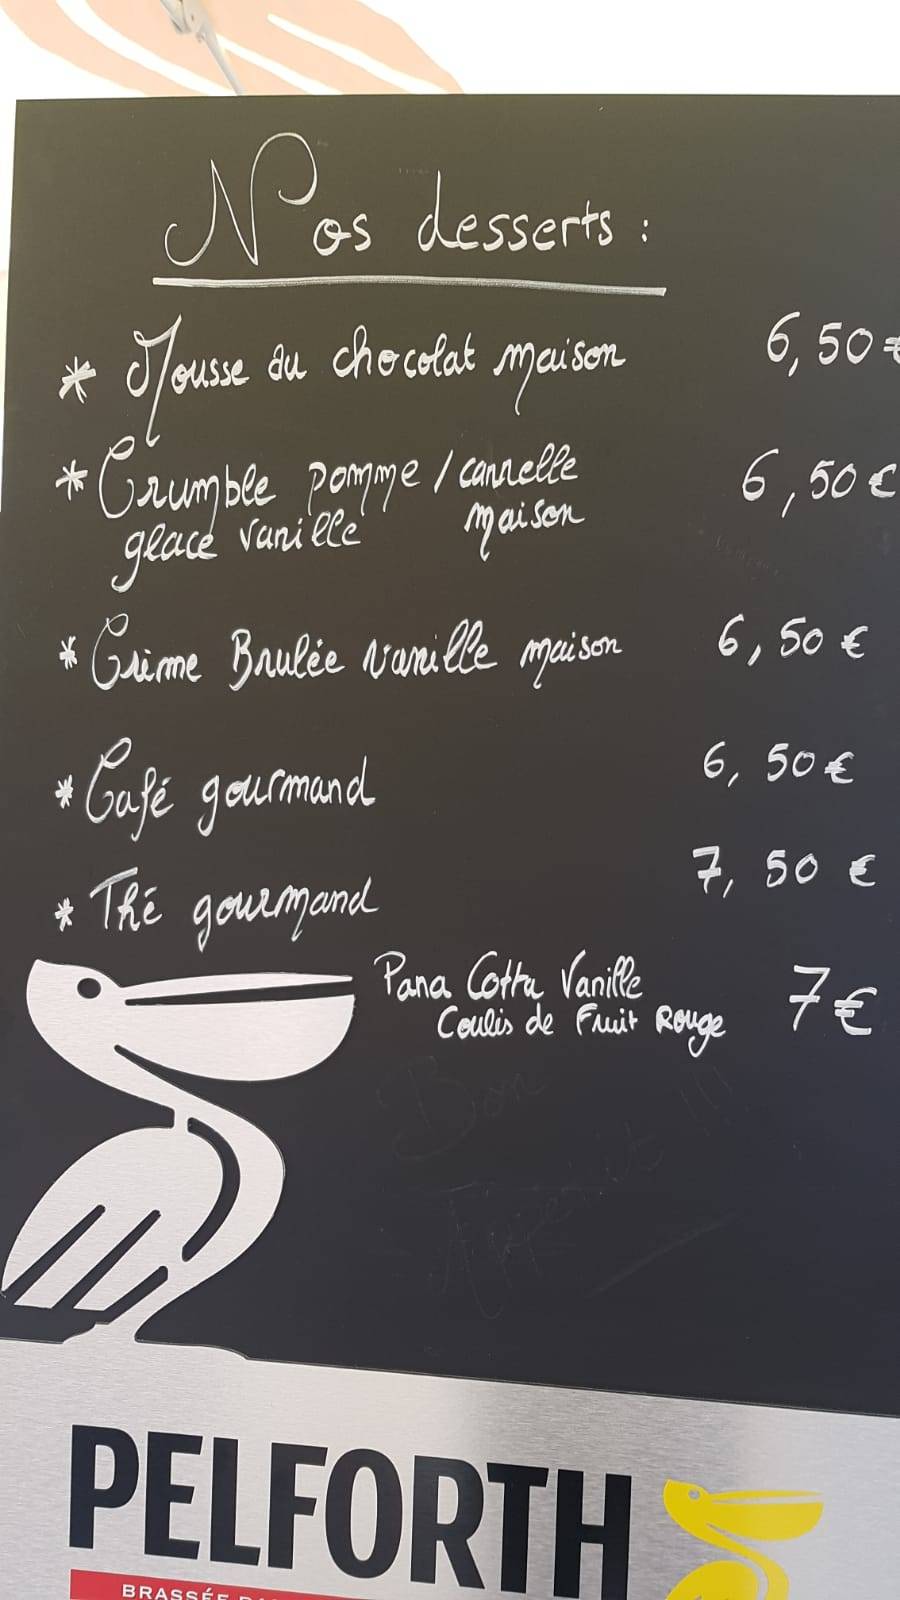 Nos desserts :
* Mousse au chocolat maison 6,50 €
* Crumble pomme / cannelle 6,50 €
glace vanille maison
* Crème Brulée vanille maison 6,50 €
* Café gourmand 6,50 €
* Thé gourmand 7,50 €
Pana Cotta Vanille 7 €
Coulis de Fruit Rouge
Bon
Appetit !!!
PELFORTH
BRASSÉE